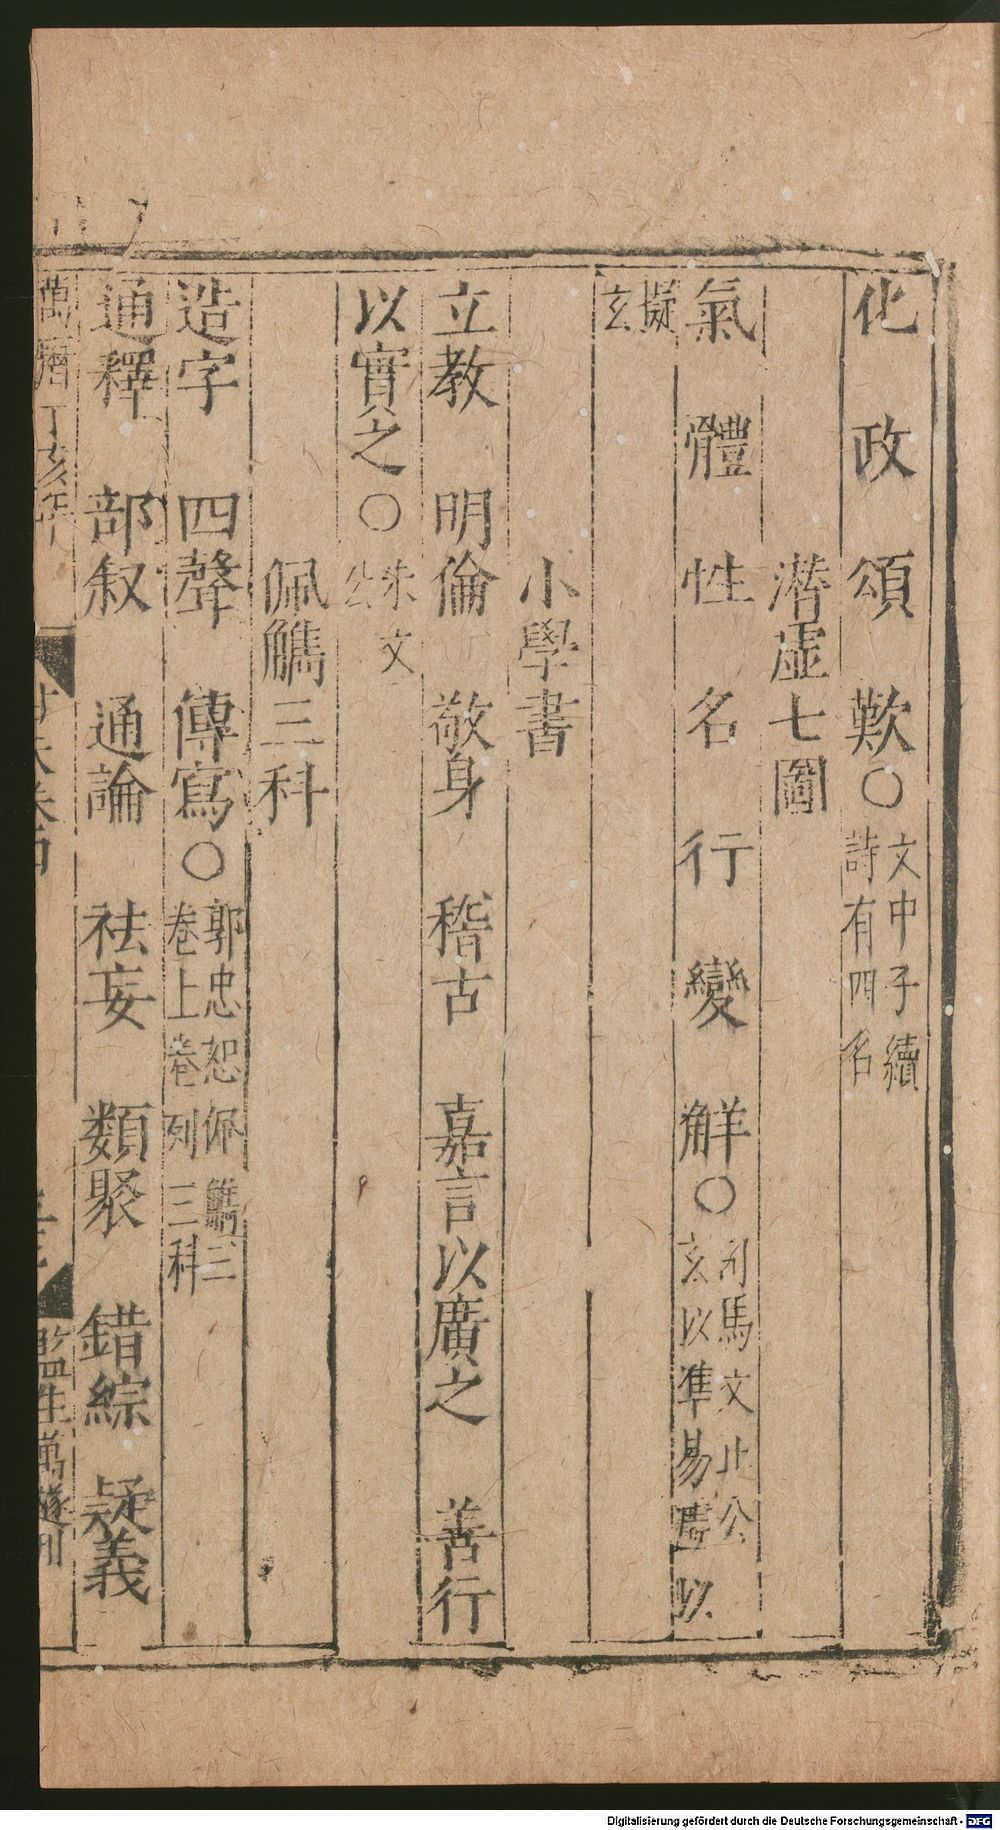 化 政 頌 歎○文中子續
詩有四名
潛虛七圖
氣 體 性 名 行 變 解○司馬文正公
玄以準易虛以
擬
玄
小學書
立教 明倫 敬身 稽古 嘉言以廣之 善行
以實之○朱文
公
佩觿三科
造字 四聲 傳寫○郭忠恕佩觿三
卷上卷列三科
通釋 部叙 通論 袪妄 類聚 錯綜 疑義
萬曆丁亥年
監生萬遂刊
Digitalisierung gefördert durch die Deutsche Forschungsgemeinschaft - DFG